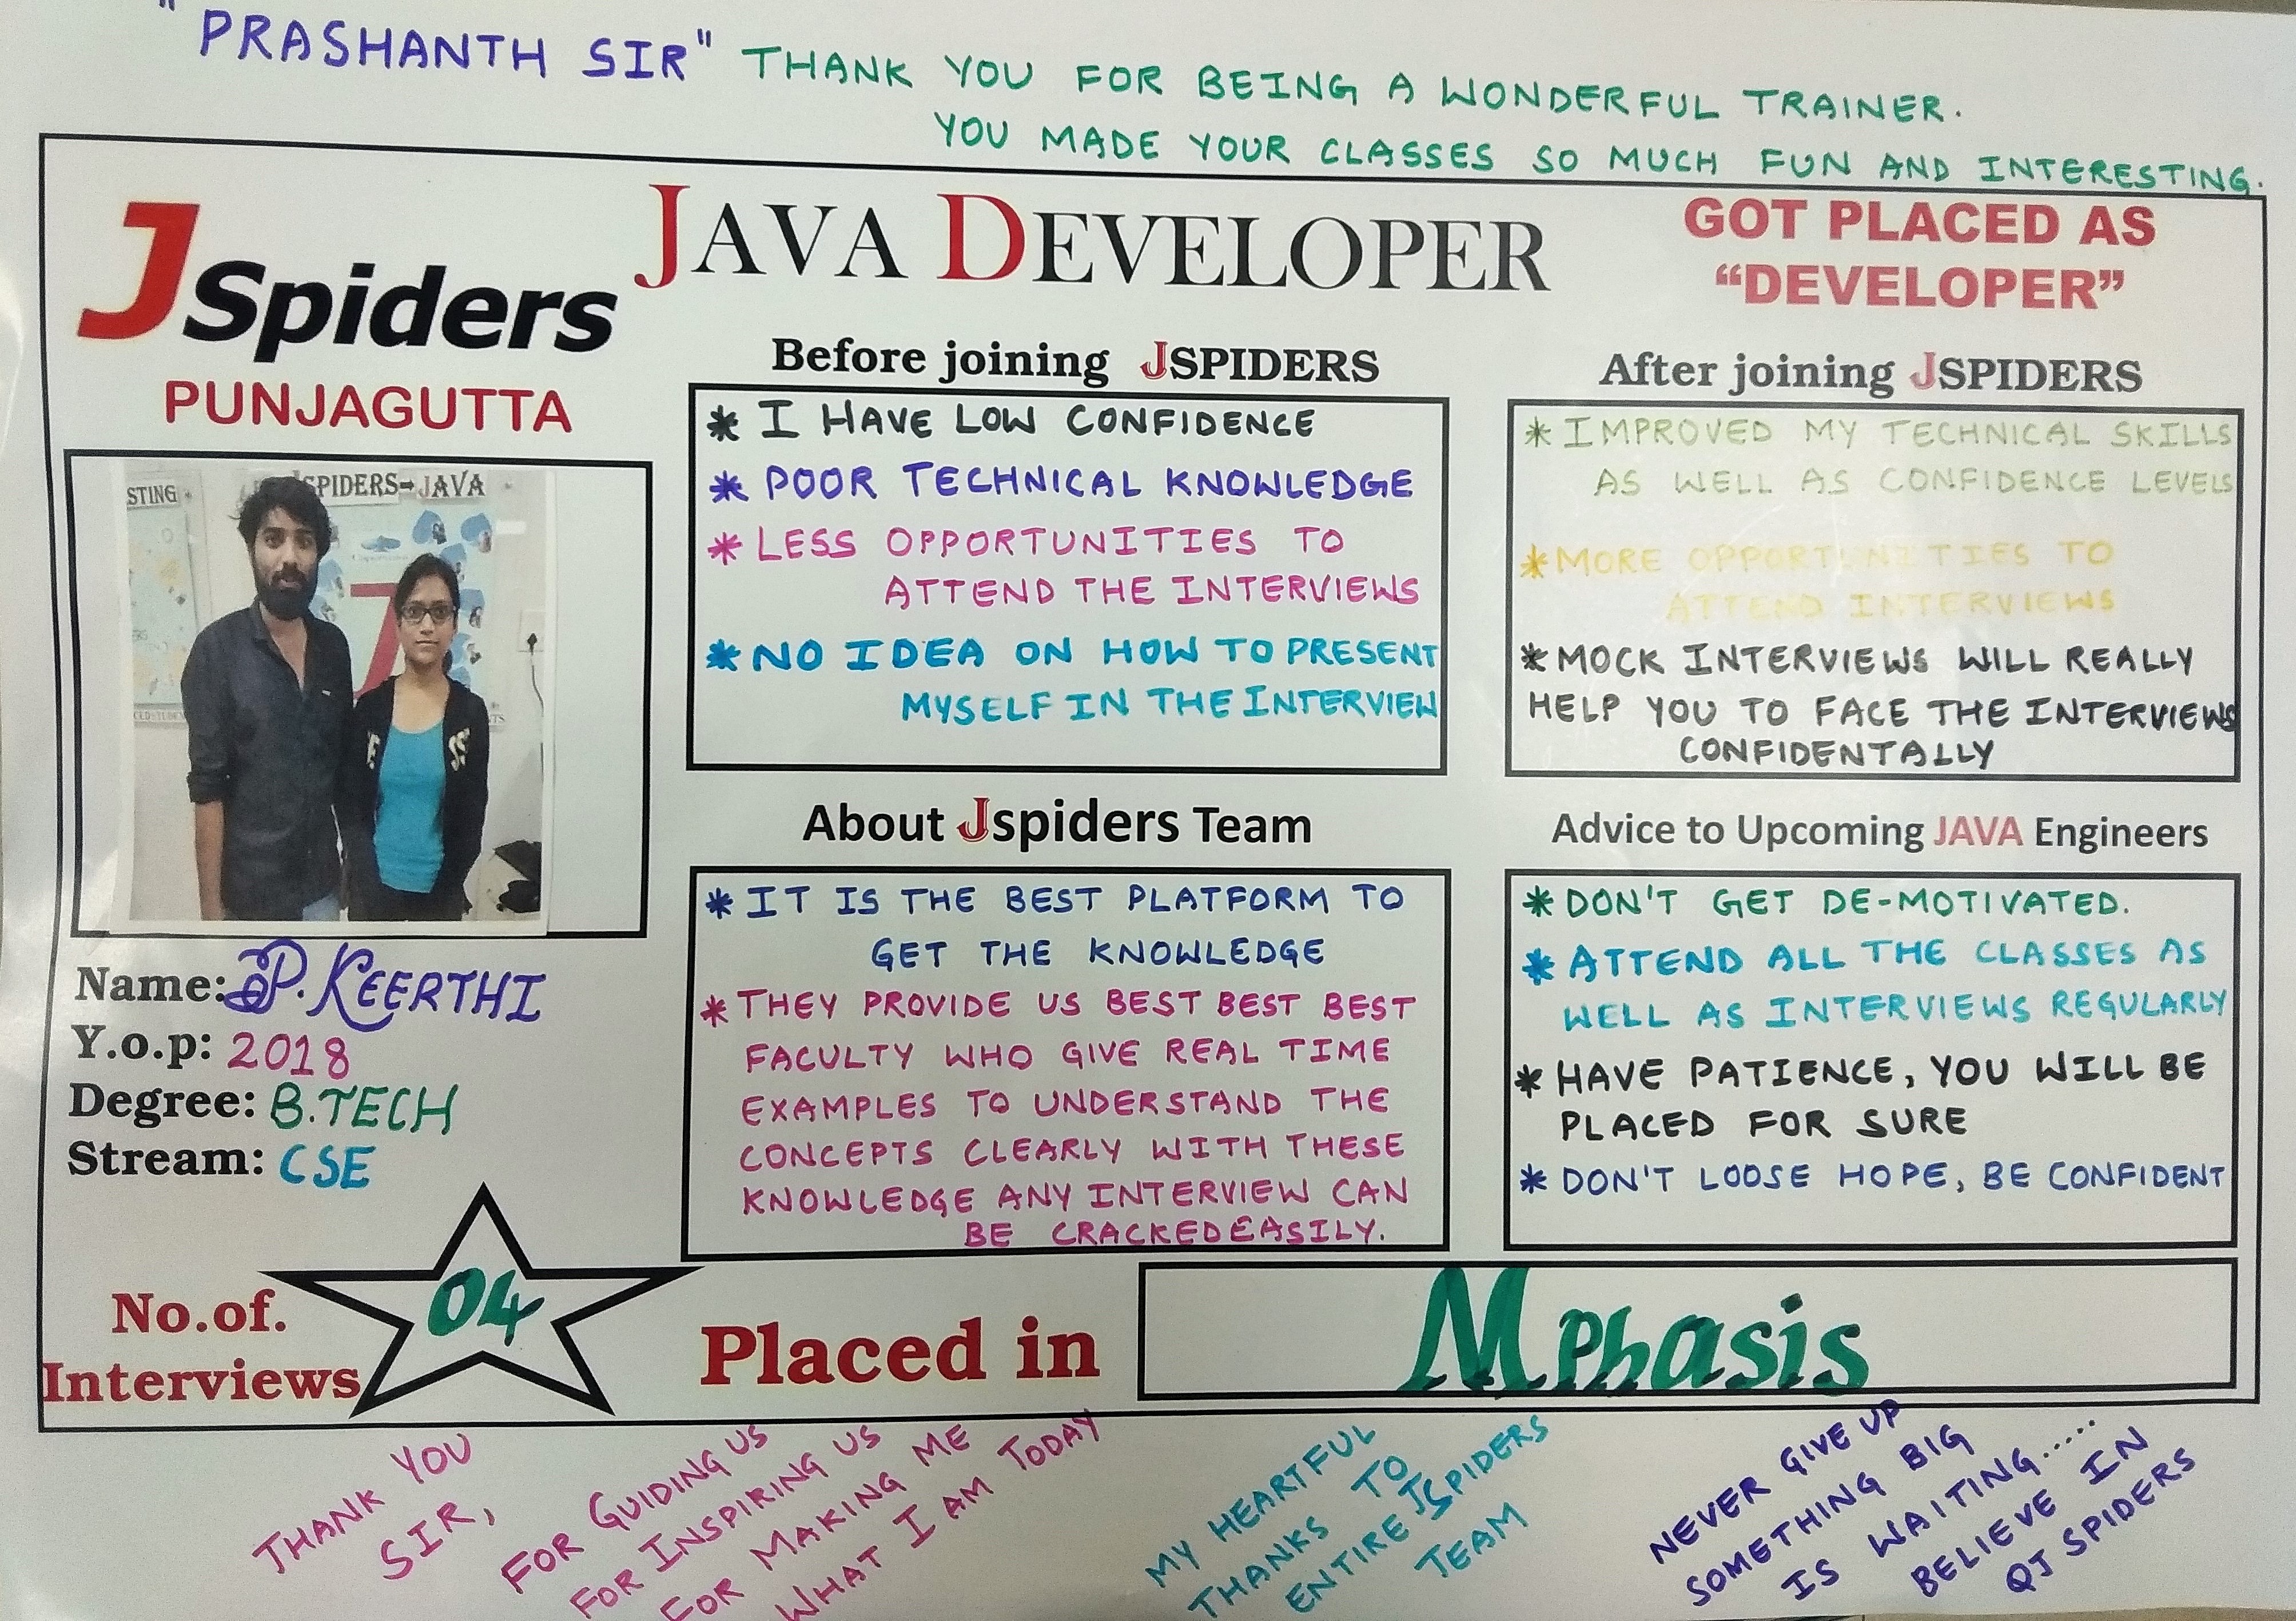 "PRASHANTH SIR" THANK YOU FOR BEING A WONDERFUL TRAINER.
YOU MADE YOUR CLASSES SO MUCH FUN AND INTERESTING.
JSpiders
PUNJAGUTTA
JAVA DEVELOPER
GOT PLACED AS
“DEVELOPER”
STING
JSPIDERS-JAVA
Before joining JSPIDERS
* I HAVE LOW CONFIDENCE
* POOR TECHNICAL KNOWLEDGE
* LESS OPPORTUNITIES TO
ATTEND THE INTERVIEWS
* NO IDEA ON HOW TO PRESENT
MYSELF IN THE INTERVIEW
After joining JSPIDERS
* IMPROVED MY TECHNICAL SKILLS
AS WELL AS CONFIDENCE LEVELS
* MORE OPPORTUNITIES TO
ATTEND INTERVIEWS
* MOCK INTERVIEWS WILL REALLY
HELP YOU TO FACE THE INTERVIEWS
CONFIDENTALLY
Name: P. KEERTHI
Y.o.p: 2018
Degree: B.TECH
Stream: CSE
About Jspiders Team
* IT IS THE BEST PLATFORM TO
GET THE KNOWLEDGE
* THEY PROVIDE US BEST BEST BEST
FACULTY WHO GIVE REAL TIME
EXAMPLES TO UNDERSTAND THE
CONCEPTS CLEARLY WITH THESE
KNOWLEDGE ANY INTERVIEW CAN
BE CRACKED EASILY.
Advice to Upcoming JAVA Engineers
* DON'T GET DE-MOTIVATED.
* ATTEND ALL THE CLASSES AS
WELL AS INTERVIEWS REGULARLY
* HAVE PATIENCE, YOU WILL BE
PLACED FOR SURE
* DON'T LOOSE HOPE, BE CONFIDENT
No.of.
Interviews
04
Placed in
Mphasis
THANK YOU
SIR,
FOR GUIDING US
FOR INSPIRING US
FOR MAKING ME
WHAT I AM TODAY
MY HEARTFUL
THANKS TO
ENTIRE JSPIDERS
TEAM
NEVER GIVE UP
SOMETHING BIG
IS WAITING.....
BELIEVE IN
QJ SPIDERS